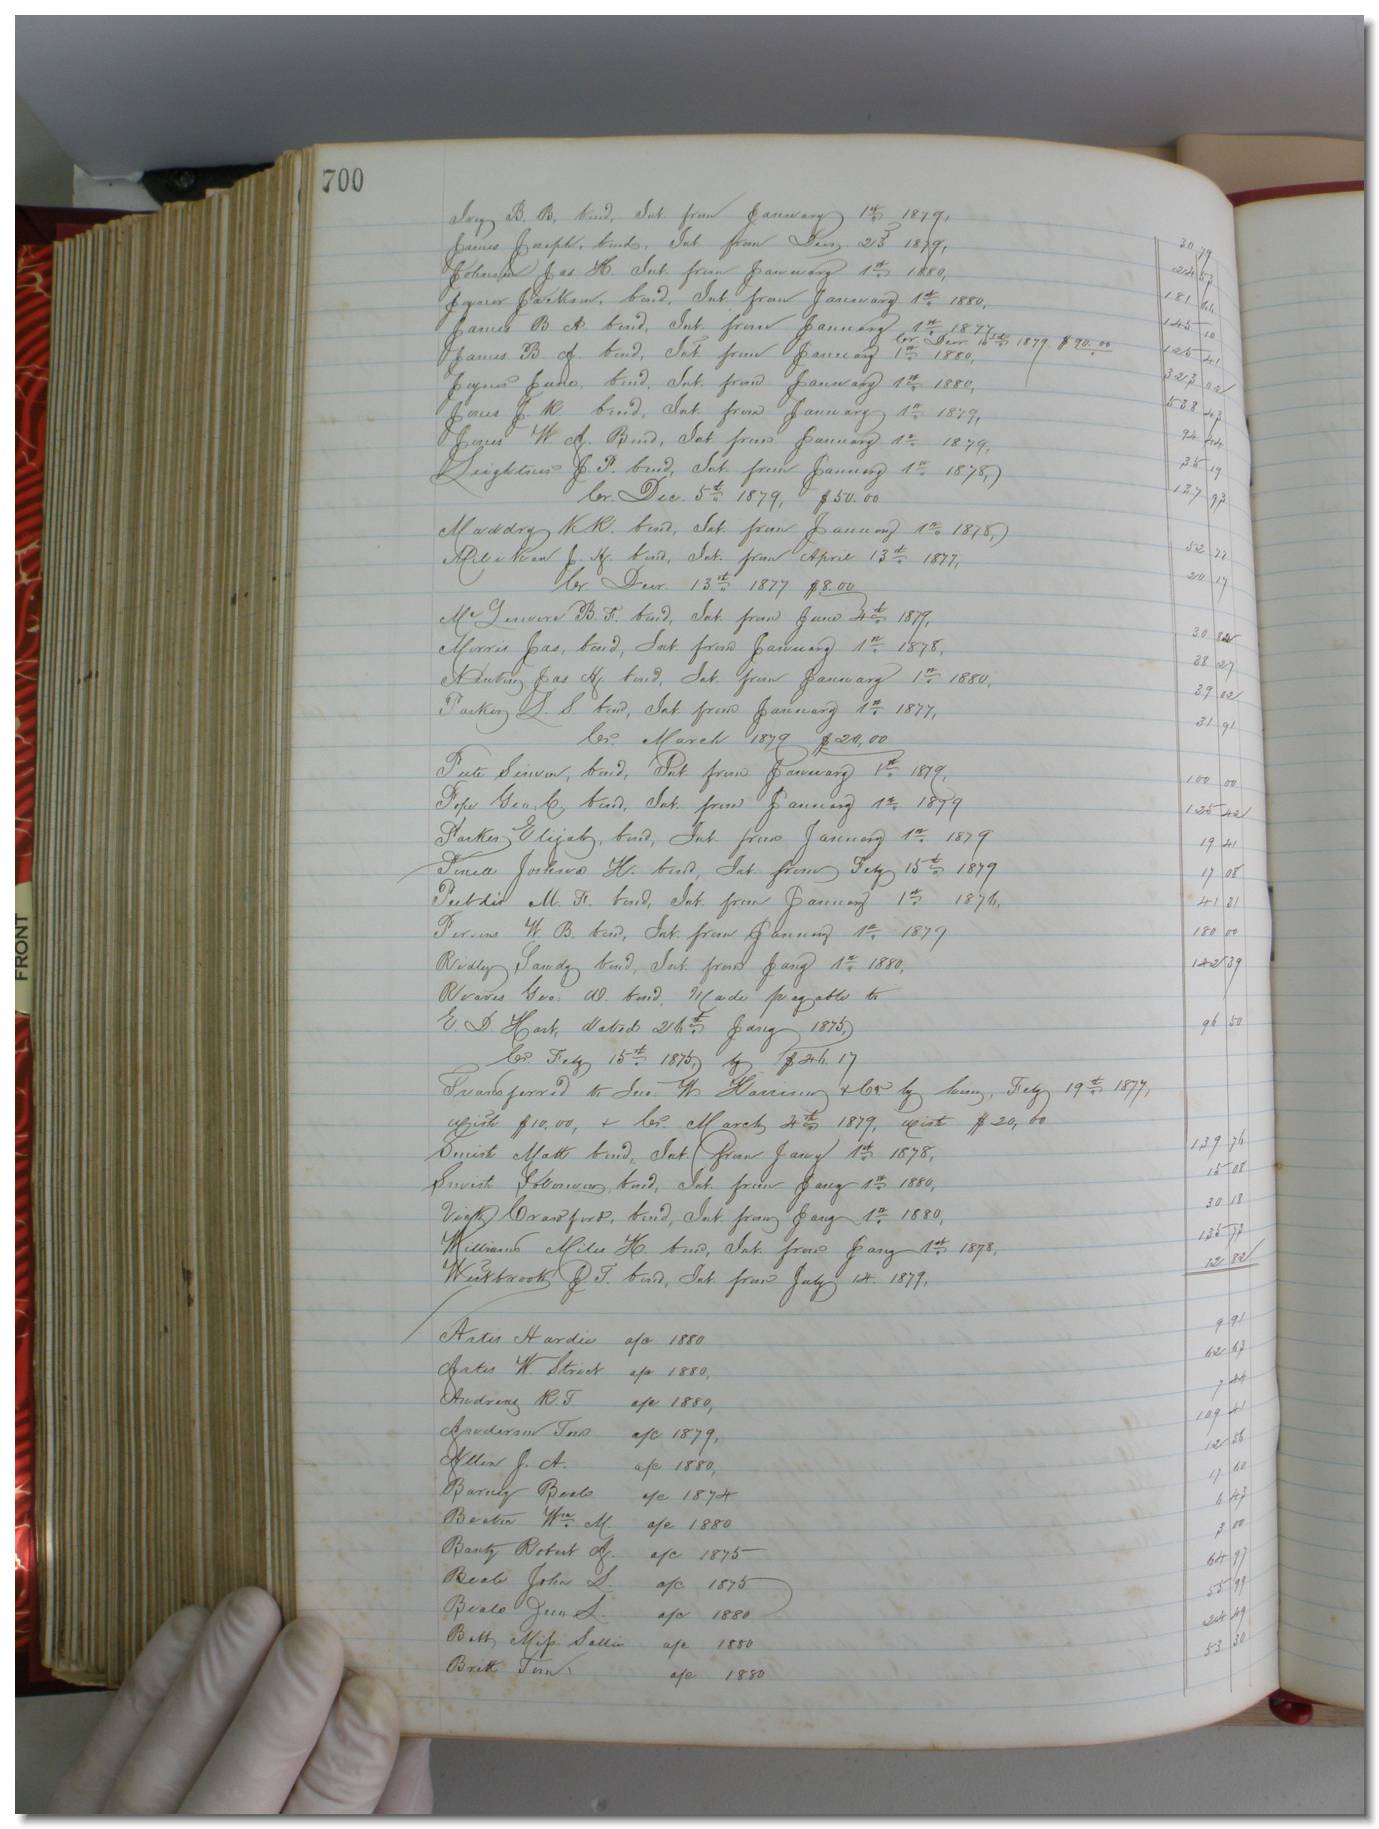 700
Ivey B. B. bond, Int. from January 1st 1879, 30 79
James Joseph, bond, Int from Decr. 23 1879, 24 53
Johnson Jas H Int. from January 1st 1880, 181 44
Joyner Jackson, bond, Int. from January 1st 1880, 145 10
James B A bond, Int. from January 1st 1877, 125 41
Cr. Decr 15th 1879 $90.00
James B. J. bond, Int from January 1st 1880, 323 02
Joyner bond, Int. from January 1st 1880, 538 43
Jones J R bond, Int. from January 1st 1879, 94 44
Jones W. J. Bond, Int from January 1st 1879, 35 19
J. P. bond, Int. from January 1st 1878, 127 93
Cr. Dec. 5th 1879, $50.00
Maddry K R. bond, Int. from January 1st 1878, 52 72
J. H. bond, Int. from April 13th 1877, 20 17
Cr Decr. 13th 1877 $8.00
B. F. bond, Int. from June 4th 1879, 30 82
Morris Jas, bond, Int. from January 1st 1878, 28 27
Jas H. bond, Int. from January 1st 1880, 39 02
Parker L. S bond, Int. from January 1st 1877, 31 91
Cr. March 1879 $20,00
Pete Simon, bond, Int. from January 1st 1879, 100 00
Pope Geo. C. bond, Int. from January 1st 1879 125 42
Parker Elijah, bond, Int from January 1st 1879 19 41
Joshua H. bond, Int from Feby 15th 1879 17 08
M. F. bond, Int. from January 1st 1876, 41 21
W. B. bond, Int. from January 1st 1879 180 00
Ridley Sandy bond, Int. from Jany 1st 1880, 142 39
Reaves Geo. W. bond, Made payable to
E. D. Hart, dated 26th Jany 1875, 96 50
Cr. Feby 15th 1875, by $26.17
Transferred to Jno. W Harrison & Co by Feby 19th 1877,
with $10,00, & Cr. March 4th 1879, with $20,00
Smith Matt bond, Int. from Jany 1st 1878, 139 76
Smith Solomon, bond, Int. from Jany 1st 1880, 15 08
Vick Crawford, bond, Int. from Jany 1st 1880, 30 18
Williams Miles H. bond, Int. from Jany 1st 1878, 135 72
Westbrook J. T. bond, Int. from July 14. 1879, 12 82
Artis Hardie a/c 1880 9 91
Artis W. Street a/c 1880, 62 63
Andrews R. T. a/c 1880, 7 44
Anderson Tom a/c 1879, 109 41
Allen J. A. a/c 1880, 12 56
Barney Beale a/c 1874 17 60
Wm. M. a/c 1880 6 43
Banty Robert J. a/c 1875 3 00
Beale John L. a/c 1875 64 97
Beale Jno L. a/c 1880 55 99
Betty Miss Sallie a/c 1880 24 49
Brett Tom, a/c 1880 53 30
FRONT